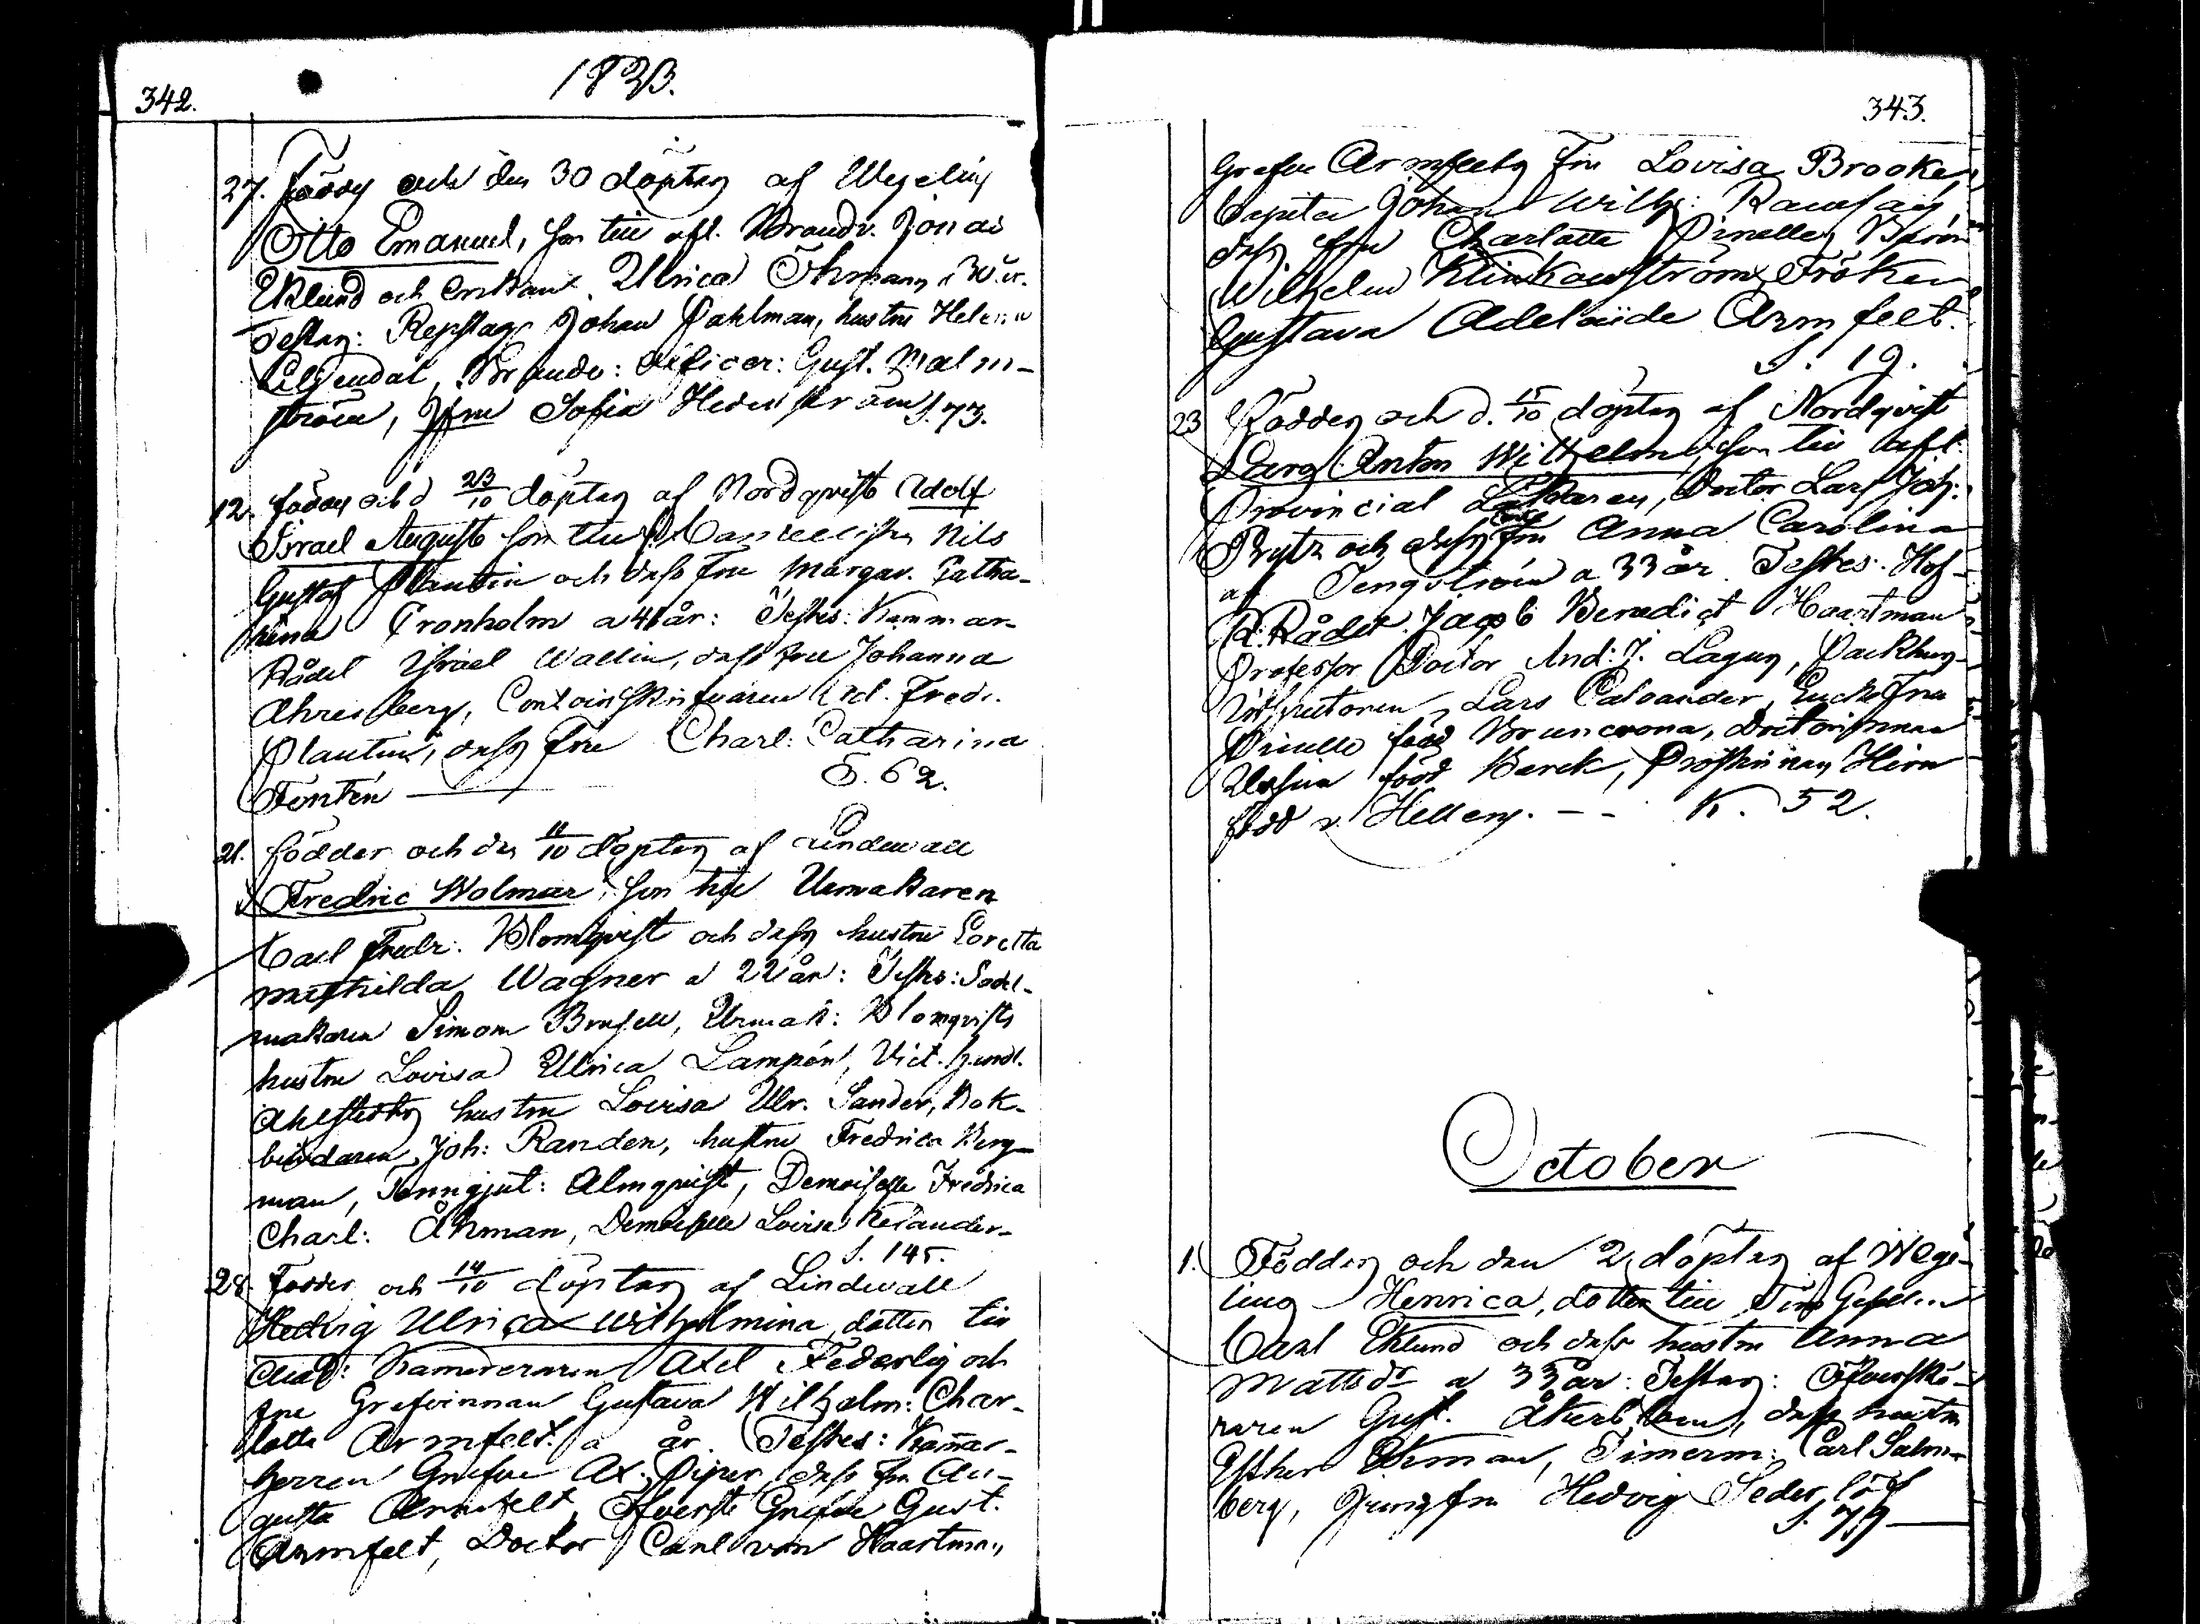 342.
1823.
27. född och den 30 döpten af Wegelius
Otto Emanuel, son till afl. Brandv. Jonas
Eklund och enkan Ulrica Öhman, 30 år.
Testes: Repslag. Johan Dahlman, hustru Helena
Liljendal, Brandv: officer: Gust. Malm-
ström, Jfru Sofia Hedenström S. 73.
12. född och d 23/10 döpten af Nordqvist Adolf
Israel August son till Cancellisten Nils
Gustaf Plantin och dess fru Margar. Catha-
rina Cronholm a 41 år: Testes: Kammar-
Rådet Israel Wallin, dess fru Johanna
Ahrenberg, Contoirskrifvaren Ad. Fredr.
Plantin, dess fru Charl: Catharina
Tentén S. 62.
21. födder och den 11/10 döpten af Lindewall
Fredric Wolmar, son till Urmakaren
Carl Fredr. Blomqvist och dess hustru Loretta
Mathilda Wagner a 22 år: Testes: Sadel-
makaren Simon Brusell, Urmak: Blomqvists
hustru Lovisa Ulrica Lampén, Vict. handl.
Ahlstedts hustru Lovisa Ulr. Sander, Bok-
bindaren Joh: Randen, hustru Fredrica Berg-
man, Tenngjut: Almqvist, Demoiselle Fredrica
Charl: Åhman, Demoiselle Lovisa Kelander
S. 145.
28. Födder och 14/10 döpten af Lindewall
Hedvig Ulrica Wilhelmina, dotter till
Kamereraren Axel Federley och
fru Grefvinnan Gustava Wilhelm: Char-
lotta Armfelt. a år. Testes: Kammar-
herren Grefve Ax. Piper, dess fru Au-
gusta Armfelt, Öfverste Grefve Gust.
Armfelt, Doctor Carl von Haartman,
343.
Grefve Armfelts fru Lovisa Brooke,
Capiten Johan Wilh: Ramsay,
dess fru Charlotta Pinello, Baron
Wilhelm Klinkowström, Fröken
Gustava Adelaide Armfelt.
S. 19.
23 Födder och d. 15/10 döpten af Nordqvist
Georg Anton Wilhelm, son till afl.
Provincial Läkaren, Doctor Lars Joh:
Prytz och dess fru Anna Carolina
af Tengström a 33 år. Testes: Hof-
R: Rådet Jacob Benedict Haartman
Professor Doctor And: J. Lagus, Packhus-
Inspectoren Lars Caloander, Enkefru
Pinello född Bruncrona, Doctorinnan
Ursin född Barck, Prostinnan Hirn
född v. Hellens. - - K. 52.
October
1. Födder och den 2 döpten af Wege-
lius Henrica, dotter till Tim Gesällen
Carl Eklund och dess hustru Anna
Mattsdr a 33 år: Testes: Öfverskä-
raren Gust. Åkerblom, dess hustru
Esther Ekman, Timerm: Carl Salm-
berg, Jungfru Hedvig Sederlöf
S. 79